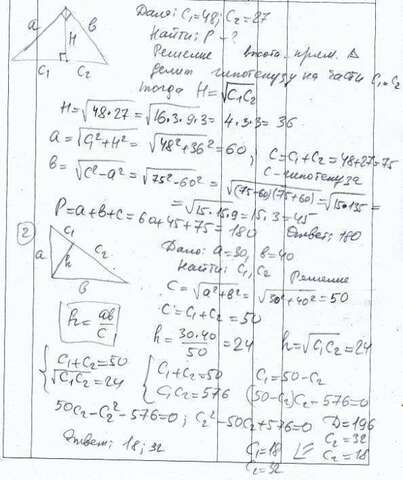 a b H C₁ C₂
Дано: C₁=48; C₂=27
Найти: P - ?
Решение высота прям. Δ
делит гипотенузу на части C₁ и C₂
тогда H=√C₁C₂
H=√48·27=√16·3·9·3= 4·3·3= 36
a=√C₁²+H²=√48²+36²=60; C=C₁+C₂=48+27=75
C-гипотенуза
b=√C²-a²=√75²-60²=√(75-60)(75+60)=√15·135=
=√15·15·9=15·3=45
P=a+b+c=60+45+75=180 Ответ: 180
2
a C₁ h C₂ b
Дано: a=30, b=40
Найти: C₁, C₂ Решение
C=√a²+b²=√30²+40²=50
C=C₁+C₂=50
h=ab/C
h=30·40/50=24 h=√C₁C₂=24
{C₁+C₂=50 {C₁+C₂=50 C₁=50-C₂
√C₁C₂=24 C₁C₂=576 (50-C₂)C₂-576=0
50C₂-C₂²-576=0; C₂²-50C₂+576=0 D=196
C₂=32
Ответ: 18; 32 C₁=18 C₂=18
C₂=32